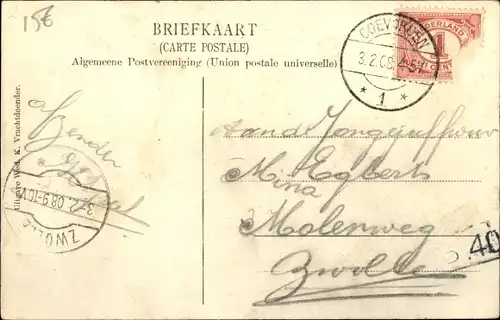 15€
BRIEFKAART
(CARTE POSTALE)
Algemeene Postvereeniging (Union postale universelle)
NEDERLAND
1
CENT
COEVORDEN
3.2.08
1
Uitgave Wed. K. Vruchtdoender.
Afzender
ZWOLLE
3-2.08.9-10V
Aan de Jongejufvrouw
Mina Egberts
Molenweg
Zwolle
40